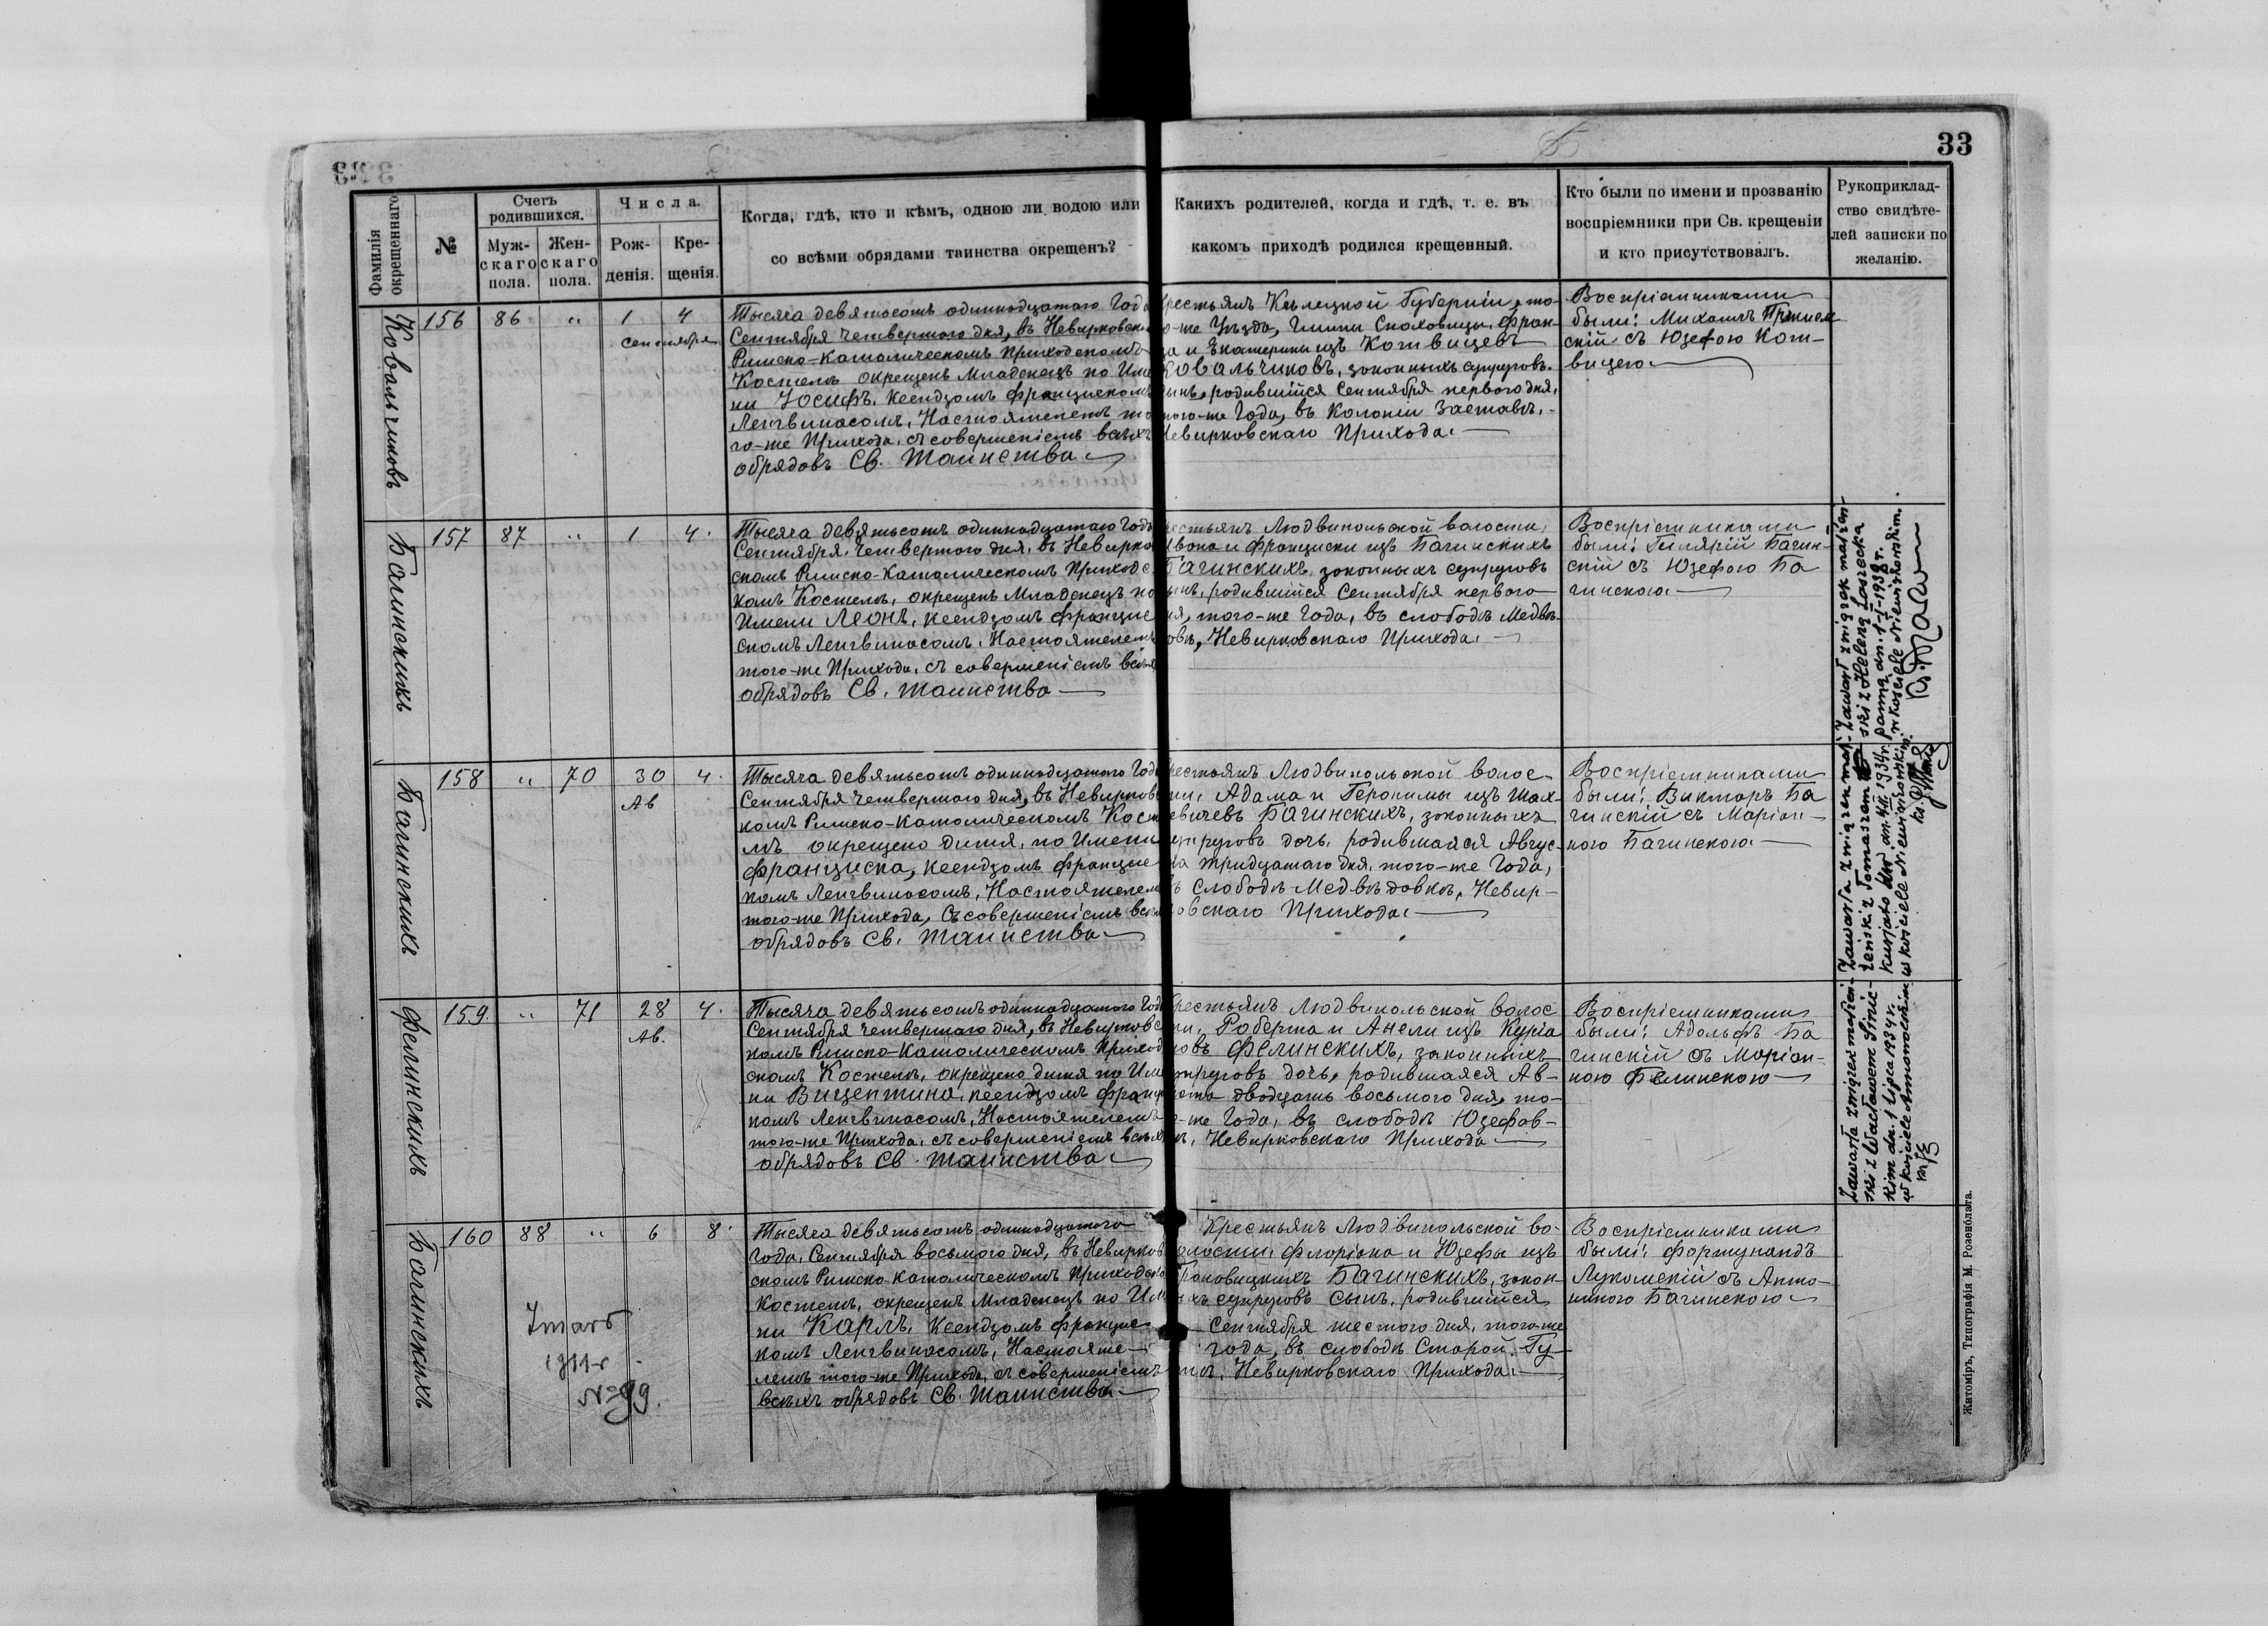 33
Фамилія окрещеннаго
№
Счетъ родившихся.
Мужскаго пола.
Женскаго пола.
Числа.
Рожденія.
Крещенія.
Когда, гдѣ, кто и кѣмъ, одною ли водою или
со всѣми обрядами таинства окрещенъ?
Какихъ родителей, когда и гдѣ, т. е. въ
какомъ приходѣ родился крещенный.
Кто были по имени и прозванію
воспріемники при Св. крещеніи
и кто присутствовалъ.
Рукоприклад-
ство свидѣте-
лей записки по
желанію.
Ковальчиковъ
156 86 " 1 4
сентября
Тысяча девятьсотъ одиннадцатаго Года
Сентября четвертого дня, въ Невирковско
Римско-Католическомъ Приходскомъ
Костелѣ окрещенъ Младенецъ по Име
ни Іосифъ, Ксендзомъ Францискомъ
Ленгвинасомъ, Настоятелемъ то
го-же Прихода, съ совершеніемъ всѣхъ
обрядовъ Св. Таинства
крестьянъ Кѣлецкой Губерніи, то-
го-же Уѣзда, Гмины Сноховицы, Фран-
ца и Екатерины изъ Котвицевъ
Ковальчиковъ, законныхъ супруговъ
сынъ, родившійся Сентября первого дня,
того-же Года, въ Колоніи Заставѣ,
Невирковскаго Прихода.
Воспріемниками
были: Михаилъ
скій съ Юзефою Кот-
вицею
Багинскихъ
157 87 " 1 4.
Тысяча девятьсотъ одиннадцатаго Года
Сентября, четвертого дня, въ Невирко
скомъ Римско-Католическомъ Приходс
комъ Костелѣ, окрещенъ Младенецъ по
Имени Леонъ, Ксендзомъ Францис
комъ Ленгвинасомъ, Настоятелемъ
того-же Прихода, съ совершеніемъ всѣхъ
обрядовъ Св. таинства
крестьянъ Людвипольской волости,
Ивана и Франциски изъ Багинскихъ
Багинскихъ, законныхъ супруговъ
сынъ, родившійся Сентября первого
дня, того-же Года, въ слободѣ Медвѣ-
довкѣ, Невирковскаго Прихода.
Воспріемниками
были: Гилярій Багин-
скій съ Юзефою Ба
гинскою
Zawarł związek małżeń-
ski z Heleną Łoszecka
panną dn. 1-I-1938 r.
w kościele Niewirkowskim.
Багинскихъ
158 " 70 30 4.
Ав
Тысяча девятьсотъ одиннадцатого Года
Сентября четвертого дня, въ Невирковс
комъ Римско-Католическомъ Косте
лѣ окрещено дитя, по Имени
Франциска, Ксендзомъ Францис
комъ Ленгвинасомъ, Настоятелемъ
того-же Прихода, Съ совершеніемъ всѣхъ
обрядовъ Св. таинства
крестьянъ Людвипольской волос-
ти, Адама и Геронимы изъ
Багинскихъ, законныхъ
супруговъ дочь, родившаяся Авгус-
та тридцатаго дня, того-же Года,
въ Слободѣ Медвѣдовкѣ, Невир-
ковскаго Прихода.
Воспріемниками
были: Викторъ Ба
гинскій съ Маріан-
ною Багинскою
Zawarła związek mał-
żeński z Tomaszem
w kościele Niewirkowskim.
Фелинскихъ
159 " 71 28 4.
Ав.
Тысяча девятьсотъ одиннадцатого Года
Сентября четвертаго дня, въ Невирковс
комъ Римско-Католическомъ Приход
скомъ Костелѣ, окрещено дитя по Име
ни Вицентина, ксендзомъ Францис
комъ Ленгвинасомъ, Настоятелемъ
того-же Прихода, съ совершеніемъ всѣхъ
обрядовъ Св. таинства
Крестьянъ Людвипольской волос
ти, Роберта и Анели изъ Куріа
новъ Фелинскихъ, законныхъ
супруговъ дочь, родившаяся Ав-
густа двадцать восьмого дня, то-
го-же Года, въ слободѣ Юзефов-
кѣ, Невирковскаго Прихода
Воспріемниками
были: Адольфъ Ба
гинскій съ Маріан-
ною Фелинскою
Zawarła związek małżeń-
ski z Wacławem
dn. 1 lipca 1934 r.
w kościele
Багинскихъ
160 88 " 6 8.
Zmarł
1911 r
№ 99.
Тысяча девятьсотъ одиннадцатого
Года, Сентября восьмого дня, въ Невирков
скомъ Римско-Католическомъ Приходско
Костелѣ, окрещенъ Младенецъ по Име
ни Карлъ, Ксендзомъ Францис
комъ Ленгвинасомъ, Настояте-
лемъ того-же Прихода, съ совершеніемъ
всѣхъ обрядовъ Св. Таинства
Крестьянъ Людвипольской во-
лости, Флоріана и Юзефы изъ
Багинскихъ, закон-
ныхъ супруговъ Сынъ, родившійся
Сентября шестого дня, того-же
года, въ слободѣ Старой Гу-
тѣ, Невирковскаго Прихода.
Воспріемниками
были: Фортунатъ
Лукомскій съ Анто-
ниною Багинскою
Житоміръ, Типографія М. Розенблата.